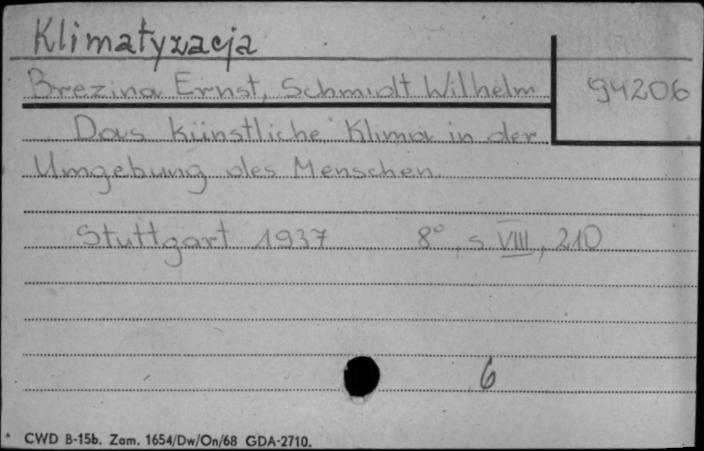 Klimatyzacja
Brezina Ernst, Schmidt Wilhelm
94206
Das künstliche Klima in der
Umgebung des Menschen.
Stuttgart 1937 8°, s VIII, 210
6
CWD B-15b. Zam. 1654/Dw/On/68 GDA-2710.